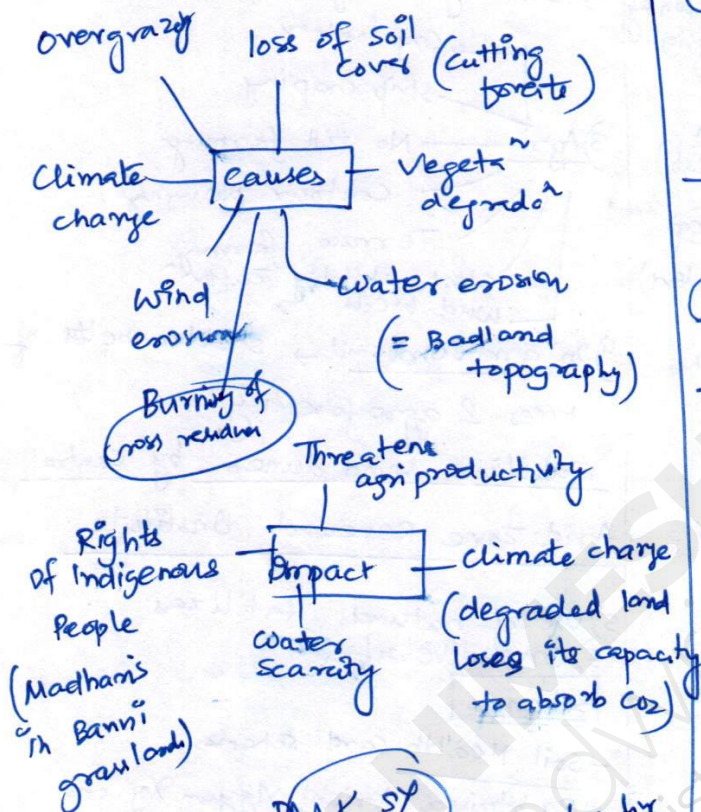 overgrazg
loss of soil
cover (Cutting
forests)
Climate
change
causes
Vegeta~
degrada~
wind
erosion
water erosion
(= Badland
topography)
Burning of
residue
Threatens
agri productivity
Rights
of Indigenous
People
(Maldharis
in Banni
grasslands)
Impact
water
scarcity
climate change
(degraded land
loses its capacity
to absorb CO2)